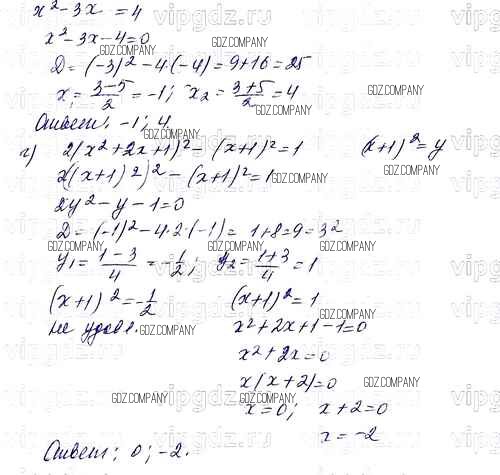 x² - 3x = 4
x² - 3x - 4 = 0
D = (-3)² - 4·(-4) = 9 + 16 = 25
x₁ = (3-5)/2 = -1; x₂ = (3+5)/2 = 4
Ответ: -1; 4
г) 2(x² + 2x + 1)² - (x+1)² = 1 (x+1)² = y
2((x+1)²)² - (x+1)² = 1
2y² - y - 1 = 0
D = (-1)² - 4·2·(-1) = 1 + 8 = 9 = 3²
y₁ = (1-3)/4 = -1/2; y₂ = (1+3)/4 = 1
(x+1)² = -1/2 (x+1)² = 1
не удовл. x² + 2x + 1 - 1 = 0
x² + 2x = 0
x(x+2) = 0
x = 0; x + 2 = 0
x = -2
Ответ: 0; -2.